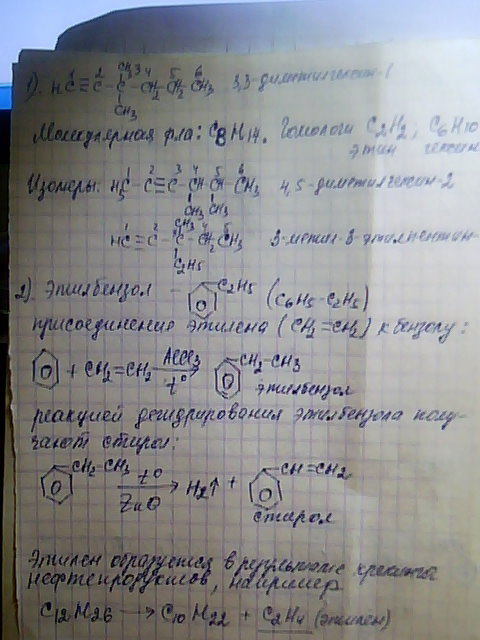 CH3
1). HC≡C-C-CH2-CH2-CH3 3,3-диметилгексин-1
CH3
Молекулярная ф-ла: C8H14. Гомологи C2H2; C6H10
этин гексин
Изомеры: H3C-C≡C-CH-CH-CH3 4,5-диметилгексин-2
CH3 CH3
CH3
HC≡C-C-CH2-CH3 3-метил-3-этилпентин-
C2H5
2) Этилбензол - C2H5 (C6H5-C2H5)
присоединение этилена (CH2=CH2) к бензолу:
+ CH2=CH2 AlCl3 t° CH2-CH3
этилбензол
реакцией дегидрирования этилбензола полу-
чают стирол:
CH2-CH3 t° ZnO H2↑ + CH=CH2
стирол
Этилен образуется в результате крекинга
нефтепродуктов, например
C12H26 → C10H22 + C2H4 (этилен)